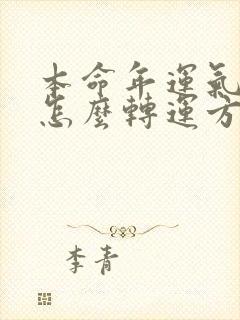 本命年運氣
怎麼轉運方
李青